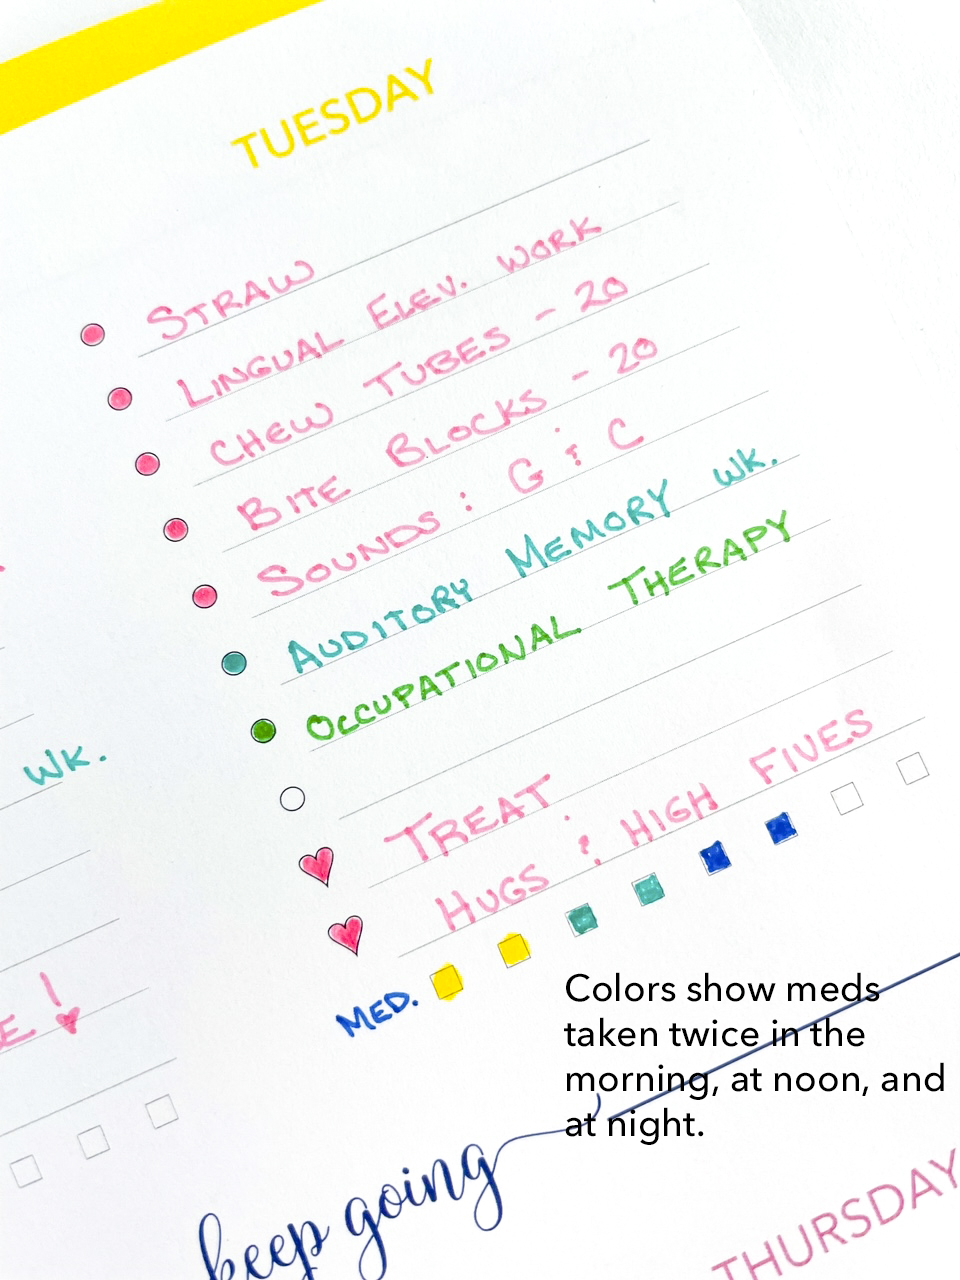 TUESDAY
STRAW
LINGUAL ELEV. WORK
CHEW TUBES - 20
BITE BLOCKS - 20
SOUNDS: G & C
AUDITORY MEMORY WK.
OCCUPATIONAL THERAPY
WK.
TREAT
HUGS & HIGH FIVES
E!
MED.
Colors show meds
taken twice in the
morning, at noon, and
at night.
keep going
THURSDAY